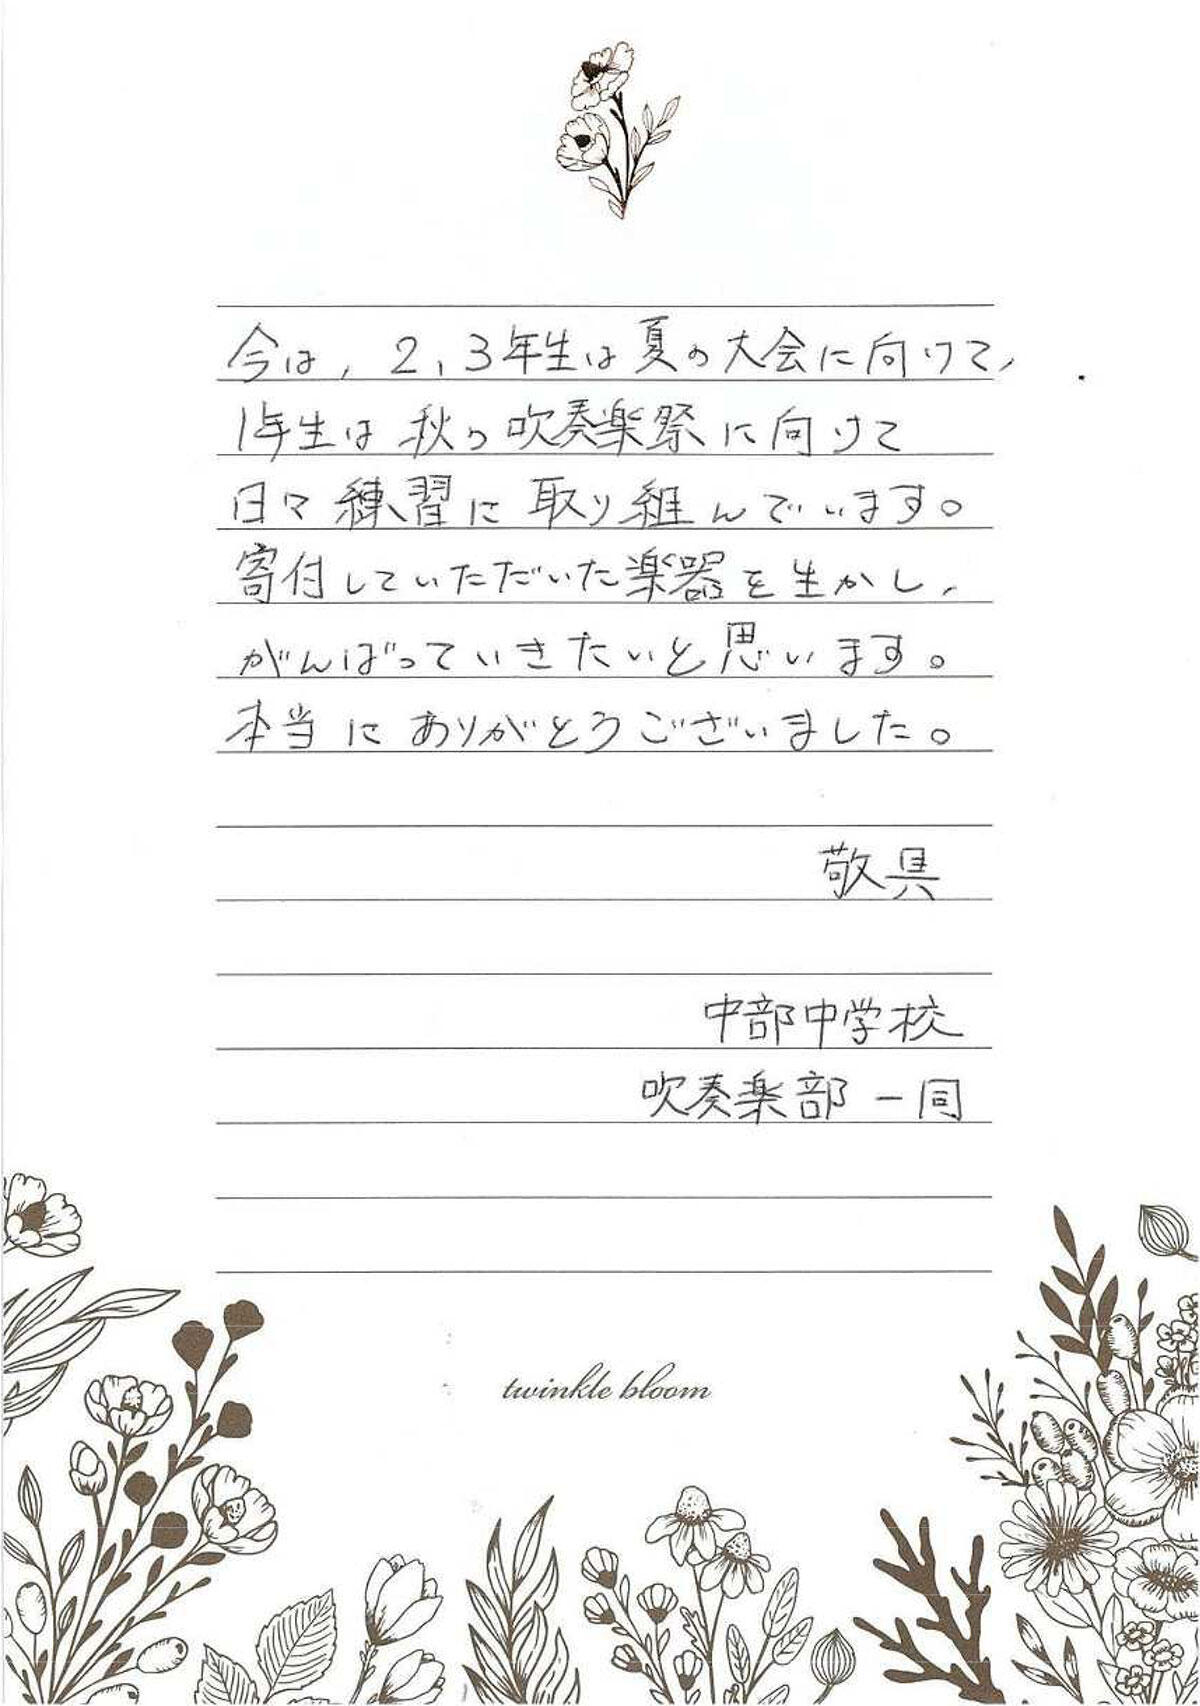 今は、2、3年生は夏の大会に向けて、
1年生は秋の吹奏楽祭に向けて
日々練習に取り組んでいます。
寄付していただいた楽器を生かし、
がんばっていきたいと思います。
本当にありがとうございました。
敬具
中部中学校
吹奏楽部一同
twinkle bloom